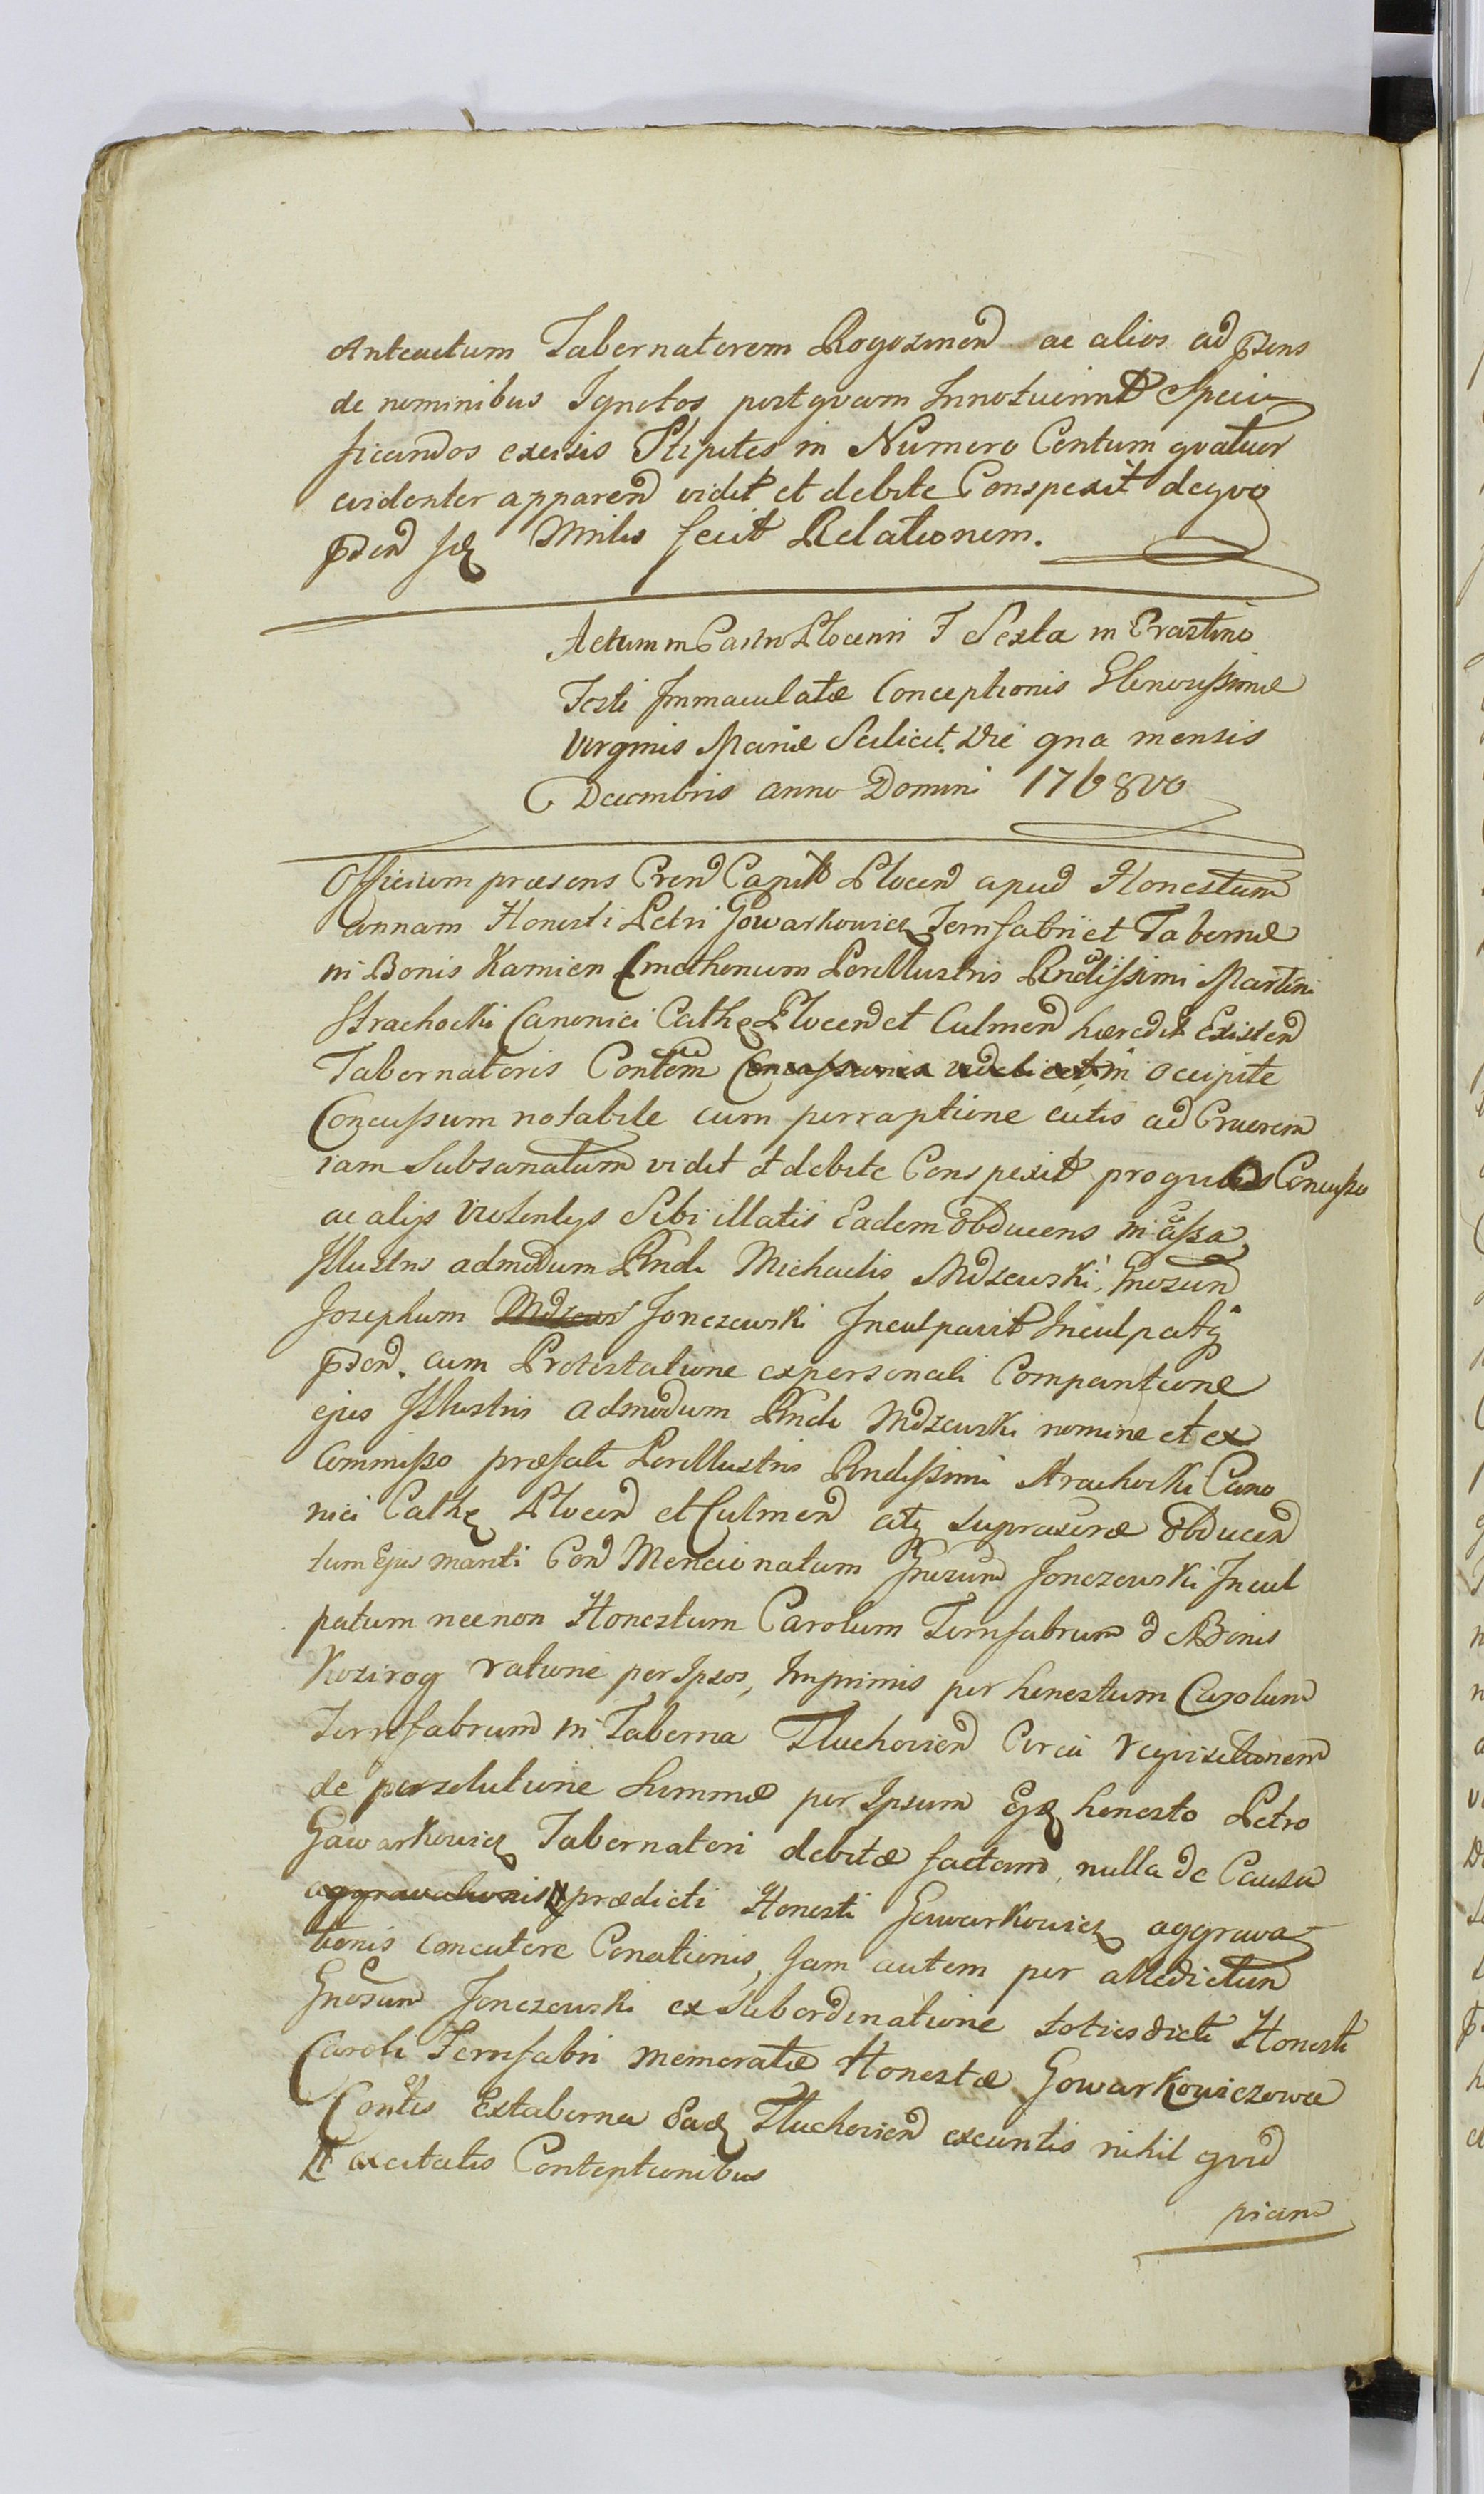 Anteactum Tabernatorem Rogozinen ac alios ad prsens
de nominibus Ignotos postqvam Innotuerint Speci
ficandos excisis Stipites in Numero Centum qvatuor
evidenter apparen vidit et debite Conspexit deqvo
prsen sq Mnilis fecit Relationem.
Actum in Castro Plocensi F Sexta in Crastino
Festi Immaculatæ Conceptionis Glenosissimæ
Virginis Mariæ Scilicet Die qna mensis
Decembris anno Domini 1768vo
Officium præsens Cren Capitl Plocen apud Honestam
Annam Honesti Petri Gowarkowicz Ferrifabri et Tabernæ
in Bonis Kamien Cmethonum Perillustris Rndissimi Martini
Strachocki Canonici Cathe Plocen et Culmen hæredit Existen
Tabernatoris Contem in occipite
Concussum notabile cum perraptione cutis ad Cruorem
iam Subsanatum vidit et debite Conspexit pro quibus Concusso
ac alijs violentijs Sibi illatis Eadem obducens in Cassa
Illustris admodum Rndi Michaelis Mdzewski, Gnosum
Josephum Jonczewski Inculpavit Inculpatq
prsen. cum Protestatione expersonali Comparitione
ejus Illustris admodum Rndi Mdzewski nomine et ex
Commisso præfati Perillustris Rndissimi Strachocki Cano
nici Cathe Plocen et Culmen atq supraseræ obducen
tum Ejus mariti Con Mencionatum Gnosum Jonczewski Incul
patum necnon Honestum Carolum Ferrifabrum d Bonis
Kozirog ratione per Ipsos, Imprimis per honestum Carolum
Ferrifabrum in Taberna Tluchovien Circa reqvisitionem
de persolutione Summæ per Ipsum Ejz honesto Petro
Gawarkowicz Tabernatori debitæ factam, nulla de Causa
prædicti Honesti Gawarkowicz aggrava
tionis concutere Conationis, Jam autem per allidictum
Gnosum Jonczewski ex Subordinatione totiesdicti Honesti
Caroli Ferrifabri memoratæ Honestæ Gowarkowiczowa
Contis Extaberna Eadz Tluchovien exeuntis nihil qvid
excitatis Contentionibus
priam